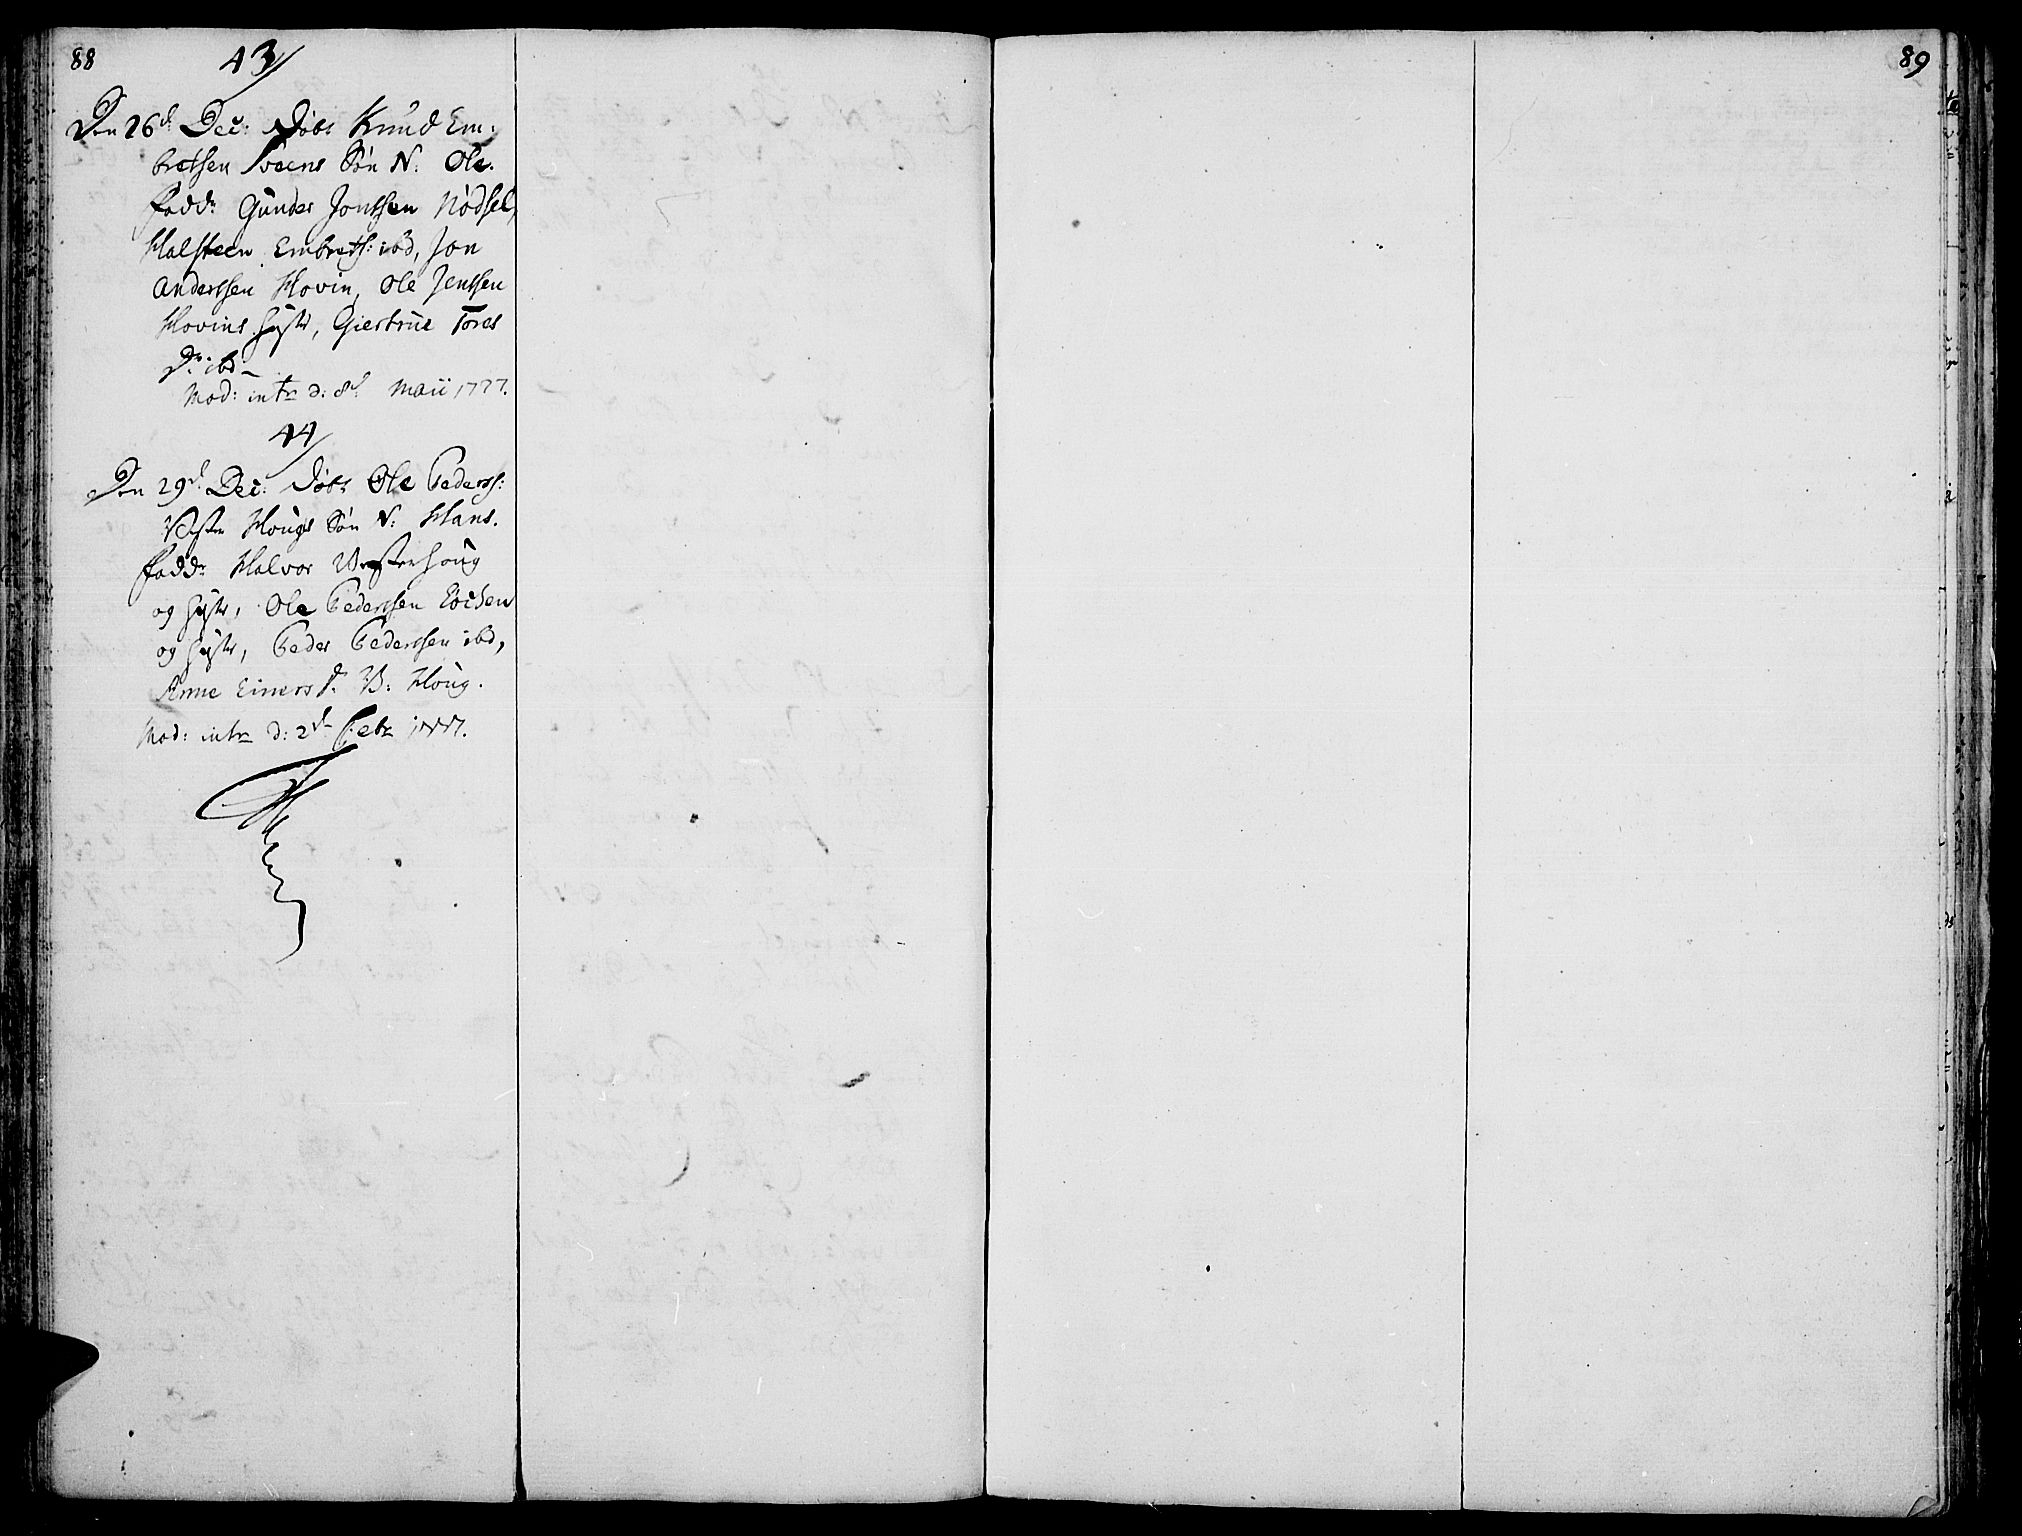 88
43/
Den 26d. Dec: Døbt Knud Em-
bretsen Sveens Søn N: Ole.
Fadd: Gunder Jonsen Nødsel,
Halsteen Embretß: ibd, Jon
Andersen Hovin, Ole Jensen
Hovins Hustr, Giertrue Tores
D: ibd-
Mod: intr d: 8d Maii 1777.
44/
Den 29d. Dec: Døbt Ole Pederß:
Vester Hougs Søn N: Hans.
Fadd: Halvor Vesterhoug
og Hustr, Ole Pedersen
og Hustr, Peder Pedersen ibd,
Anne Einers D. V: Houg.
Mod: intr d: 2d Febr 1777.
89